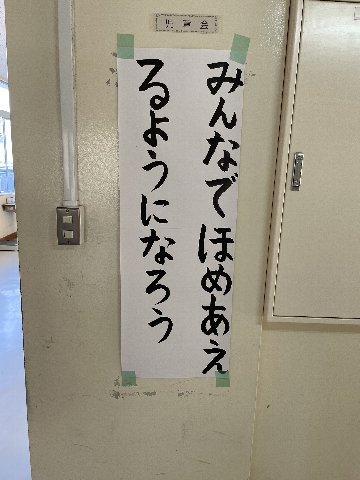 みんなでほめあえ
るようになろう